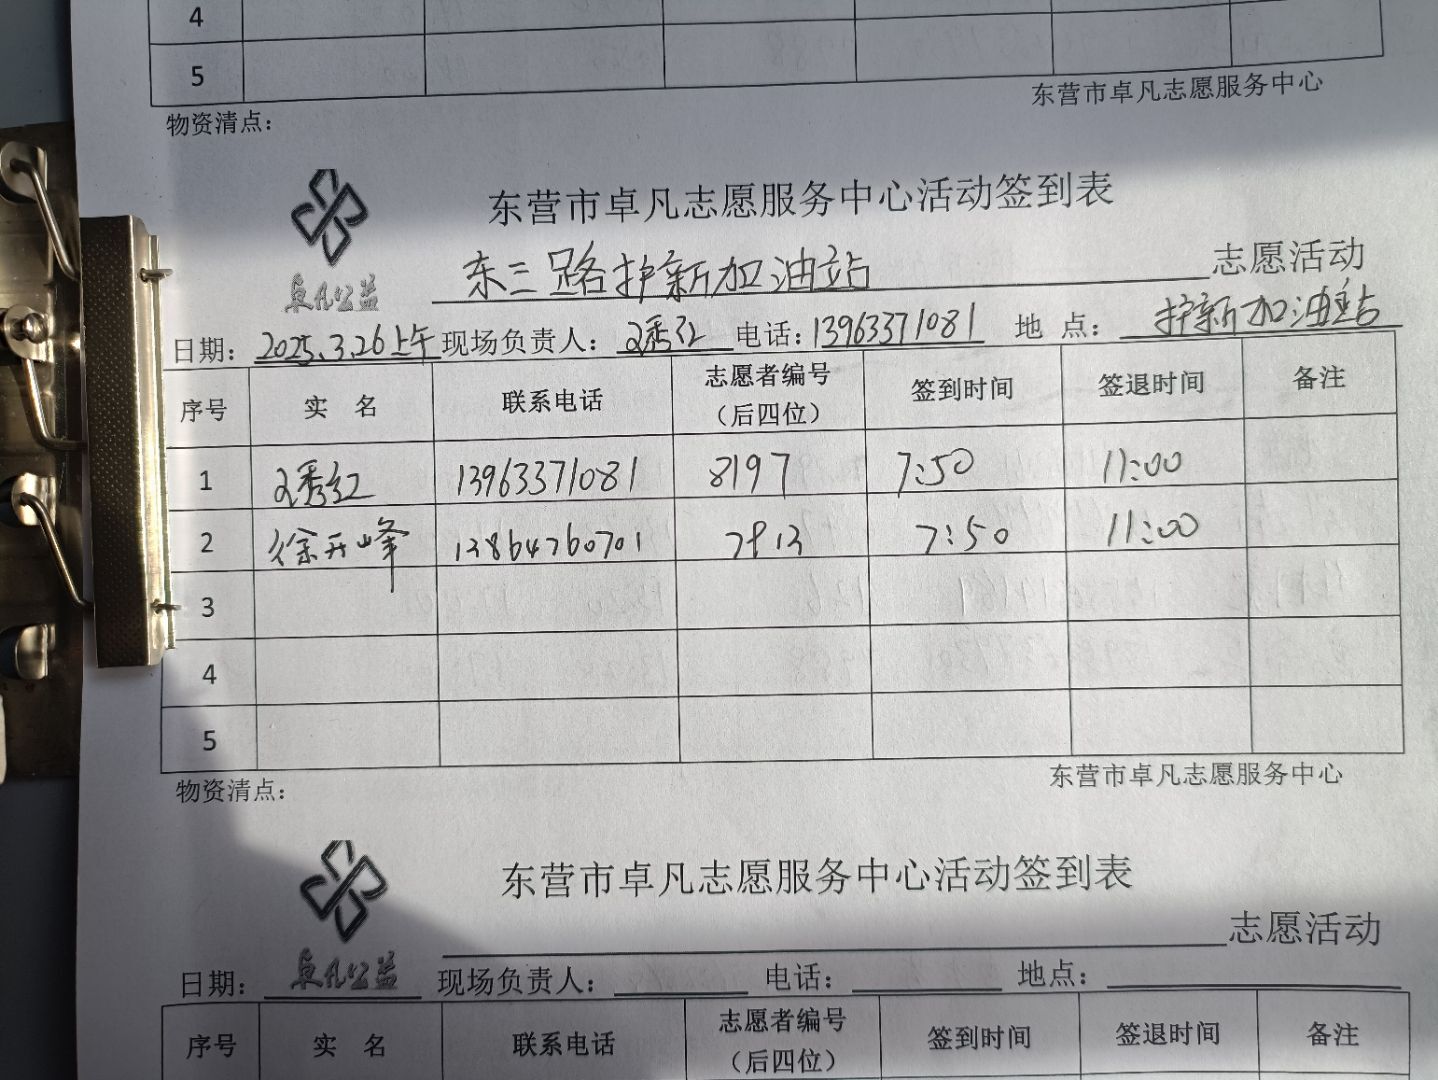 4
5
东营市卓凡志愿服务中心
物资清点：
东营市卓凡志愿服务中心活动签到表
卓凡公益
东三路护新加油站 志愿活动
日期： 2025.3.26上午 现场负责人： 秀红 电话：13963371081 地 点： 护新加油站
序号 实 名 联系电话 志愿者编号（后四位） 签到时间 签退时间 备注
1 秀红 13963371081 8197 7:50 11:00
2 徐开峰 13864760701 7:50 11:00
3
4
5
物资清点：
东营市卓凡志愿服务中心
东营市卓凡志愿服务中心活动签到表
卓凡公益
志愿活动
日期： 现场负责人： 电话： 地点：
序号 实 名 联系电话 志愿者编号（后四位） 签到时间 签退时间 备注